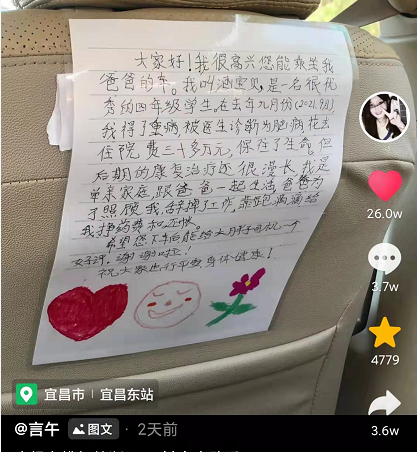 大家好！我很高兴您能乘坐我
爸爸的车。我叫涵宝贝，是一名很优
秀的四年级学生在去年九月份(2021.9月)
我得了重病被医生诊断为脑病花去
住院费三十多万元，保住了生命。但
后期的康复治疗还很漫长，我是
单亲家庭跟爸爸一起生活，爸爸为
了照顾我，辞掉工作，靠跑滴滴给
我挣药费和
希望您下车后能给大胖子司机一个
好评，谢谢啦！
祝大家出行平安身体健康！
26.0w
3.7w
4779
宜昌市 | 宜昌东站
@言午 图文 · 2天前
3.6w